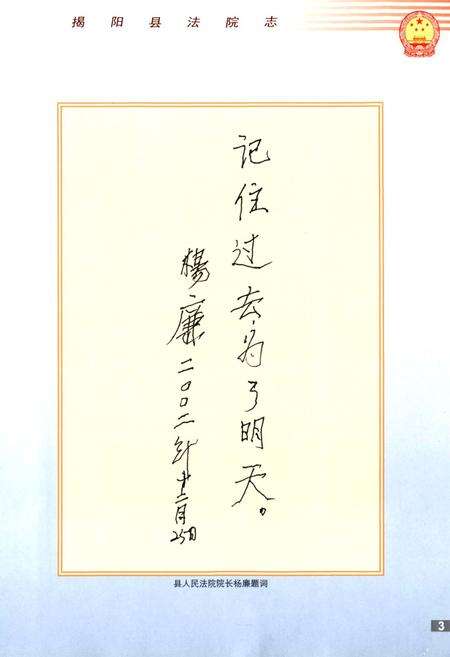 揭阳县法院志
记住过去,为了明天。
楊廉二〇〇二年十二月25日
县人民法院院长杨廉题词
3